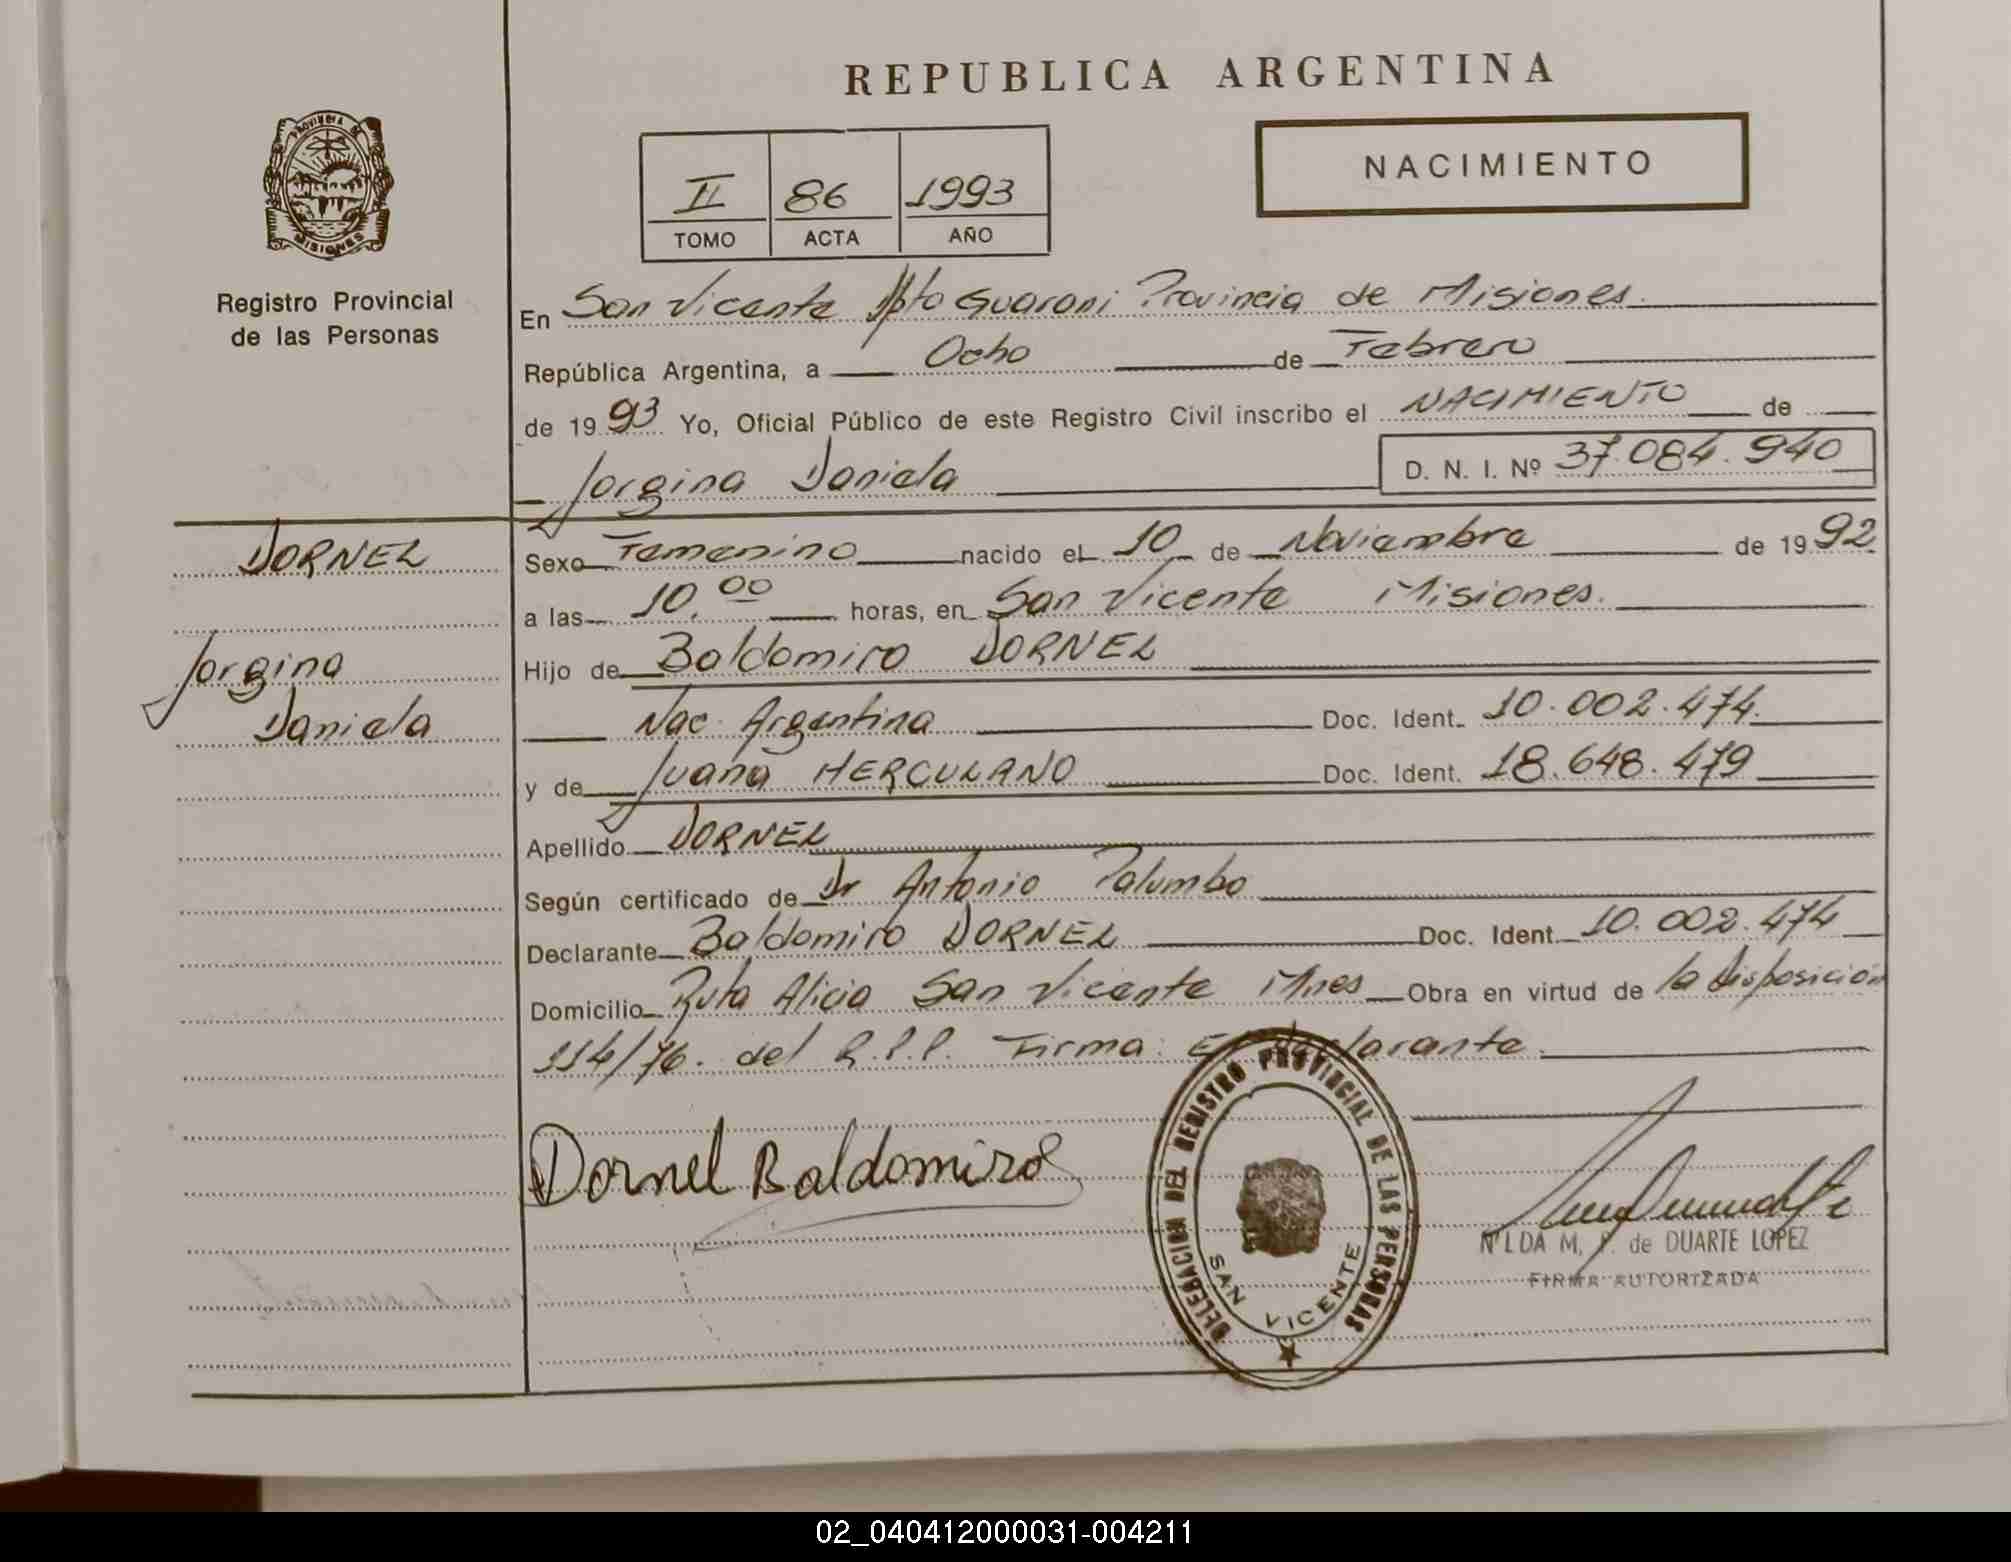 REPUBLICA ARGENTINA
NACIMIENTO
II 86 1993
TOMO ACTA AÑO
PROVINCIA DE MISIONES
Registro Provincial
de las Personas
En San Vicente Dpto Guarani Provincia de Misiones.
República Argentina, a Ocho de Febrero
de 1993 Yo, Oficial Público de este Registro Civil inscribo el NACIMIENTO de
Jorgina Daniela D. N. I. Nº 37.084.940
DORNEL
Jorgina
Daniela
Sexo Femenino nacido el 10 de Noviembre de 1992
a las 10.00 horas, en San Vicente Misiones.
Hijo de Baldomiro DORNEL
Nac. Argentina Doc. Ident. 10.002.474.
y de Juana HERCULANO Doc. Ident. 18.648.479
Apellido DORNEL
Según certificado de Dr Antonio Palumbo
Declarante Baldomiro DORNEL Doc. Ident. 10.002.474
Domicilio Ruta Alicia San Vicente Mnes Obra en virtud de la disposición
114/76. del R.P.P. Firma: El declarante.
Dornel Baldomiro
DELEGACION DEL REGISTRO PROVINCIAL DE LAS PERSONAS
SAN VICENTE
NILDA M. de DUARTE LOPEZ
FIRMA AUTORIZADA
02_040412000031-004211